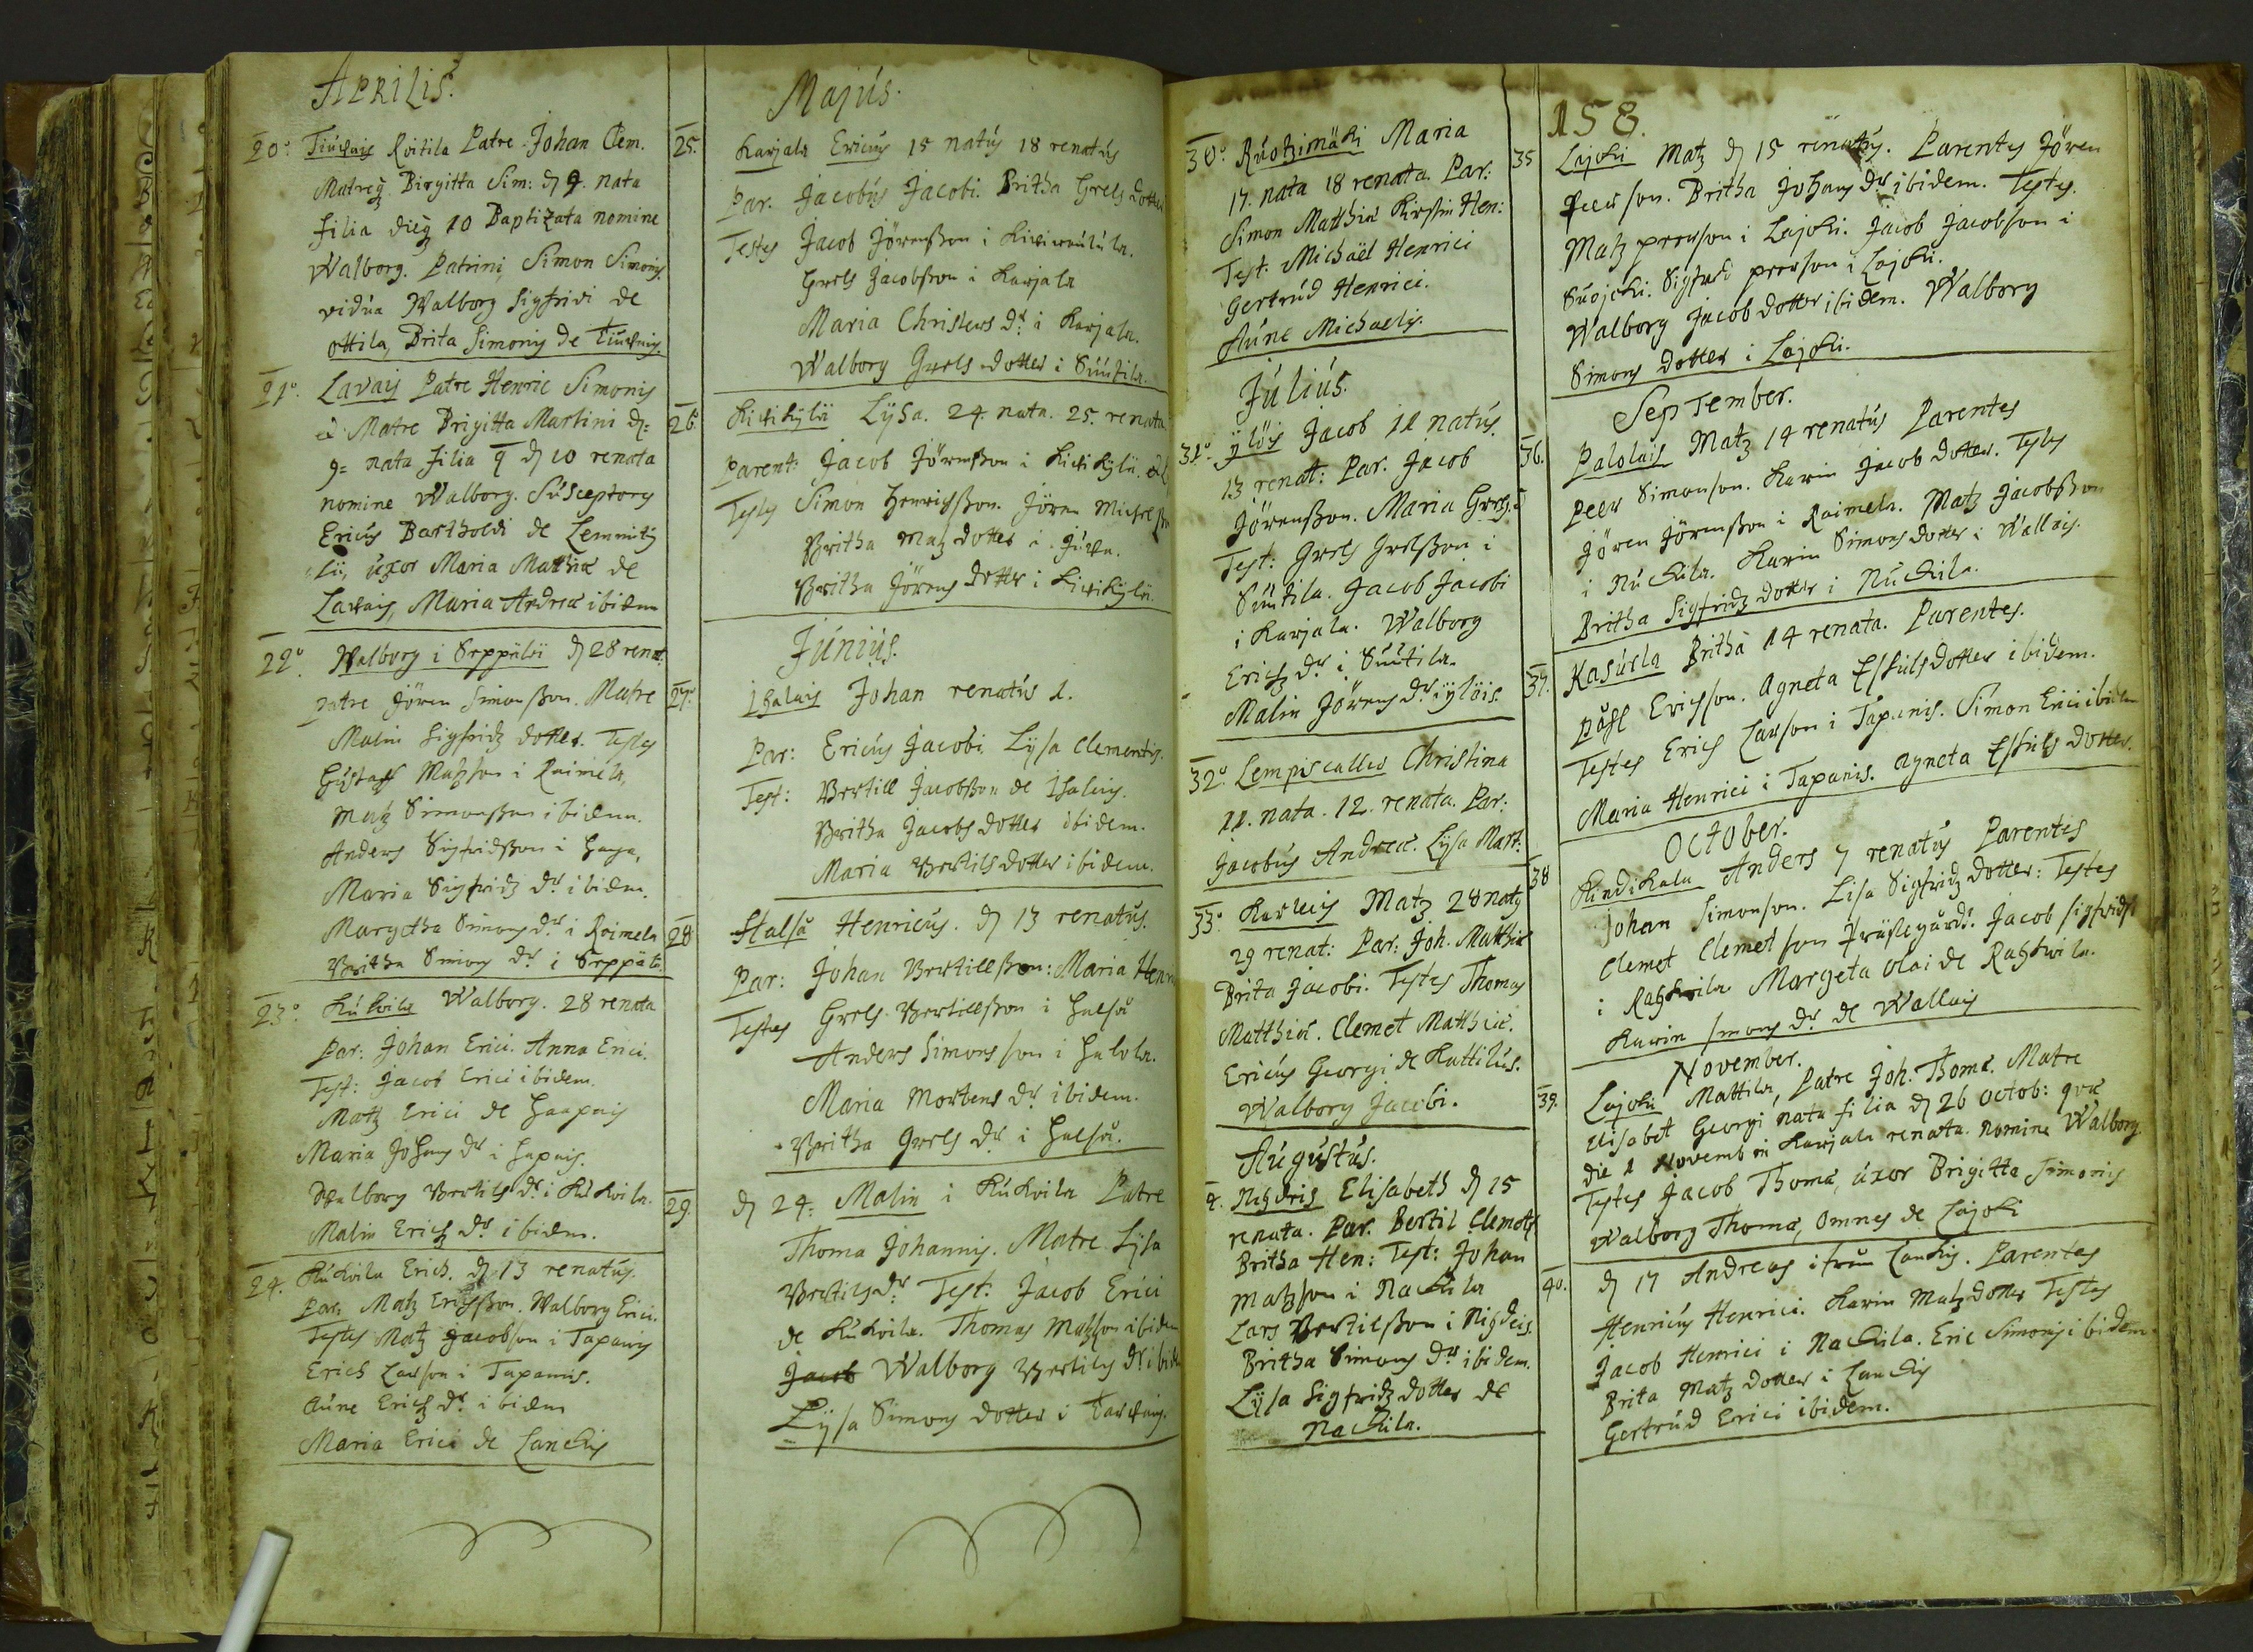 APRILIS.
20. Tiuchais Roitila Patre Johan Clem.
Matreq Birgitta Sim: d 9. nata
filia dieq 10 Baptizata nomine
Walborg. Patrini, Simon Simonis
vidua Walborg Sigfridi de
ottila, Brita Simonis de
21. Lavais Patre Henric Simonis
Matre Brigitta Martini d
9= nata filia d 10 renata
nomine Walborg. Susceptores
Ericus Bartholdi de
uxor Maria Matthiæ de
Lavais, Maria Andreæ ibidem
22. Walborg i Seppälä d 28 renat.
patre Jören Simonsson. Matre
Malin Sigfridz dotter. Testes
Gustaff Matzson i Raimela,
Matz Simonsson ibidem.
Anders Sigfridsson i
Maria Sigfridz dr ibidem.
Margetha Simons dr i Raimela
Britha Simons dr i Seppälä.
23. Kukoila Walborg. 28 renata
Par: Johan Erici. Anna Erici.
Test: Jacob Erici ibidem.
Matz Erici de Haapais
Maria Johans dr i Hapais.
Walborg Bertils dr i Kukoila.
Malin Erichs dr ibidem.
24. Kukoila Erich. d 13 renatus.
Par: Matz Erichsson. Walborg Erici.
Testes Matz Jacobson i Tapanis
Erich Larson i Tapanis.
Aune Erichs dr ibidem
Maria Erici de Lanckis
Majus.
25. Karjala Ericus 15 natus 18 renatus
Par. Jacobus Jacobi. Britha Grels dotter
Testes Jacob Jörensson i
Grels Jacobsson i Karjala
Maria Christers dr i Karjala.
Walborg Grels dotter i Suutila.
26. Kivikylä Lysa. 24. nata. 25. renata
Parent: Jacob Jörensson i Kivikylä.
Testes Simon Henrichsson. Jören
Britha Matz dotter i
Britha Jörens dotter i Kivikylä.
Junius.
27. Ihalais Johan renatus 1.
Par: Ericus Jacobi Lysa Clementis.
Test: Bertill Jacobsson de Ihalais.
Britha Jacobs dotter ibidem.
Maria Bertils dotter ibidem.
28 Halsu Henricus. d 13 renatus.
Par: Johan Bertillsson: Maria
Testes Grels Bertillsson i Halsu
Anders Simonsson i Halola.
Maria Mortens dr ibidem.
Britha Grels dr i Halsu.
29. d 24. Malin i Kukoila Patre
Thoma Johannis. Matre Lysa
Bertils dr Test. Jacob Erici
de Kukoila. Thomas Matzson ibidem
Jacob Walborg Bertils dr
Lysa Simons dotter i
30. Ruotzimäki Maria
17. nata 18 renata. Par:
Simon Matthiæ Kirstin Hen:
Test: Michael Henrici
Gertrud Henrici.
Aune Michaelis.
Julius.
31. ylöis Jacob 11 natus.
13 renat: Par. Jacob
Jörensson. Maria Grels.
Test: Grels Grelsson i
Suutila. Jacob Jacobi
i Karjala. Walborg
Erichs dr i Suutila.
Malin Jörens dr i ylöis.
32. Lempiscallio Christina
11. nata. 12. renata. Par:
Jacobus Andreæ. Lysa Mart:
33. Karleis Matz 28 natus
29 renat: Par: Joh. Matthiæ
Brita Jacobi. Testes Thomas
Matthiæ. Clemet Matthiæ.
Ericus Georgi de Kattilus.
Walborg Jacobi.
Augustus.
Elisabeth d 15
renata. Par. Bertil Clemets
Britha Hen: Test: Johan
Matzson i Nackila
Lars Bertilsson i
Britha Simons dr ibidem.
Lysa Sigfridz dotter de
Nackila.
158.
35 Lajoki Matz d 15 renatus. Parentes Jören
Peerson. Britha Johans dr ibidem. Testes.
Matz peerson i Lajoki. Jacob Jacobson i
Suojoki. Sigfred peerson i Lajoki.
Walborg Jacob dotter ibidem. Walborg
Simons dotter i Lajoki.
September.
36. Palolais Matz 14 renatus Parentes
Peer Simonson. Karin Jacob dotter. Testes
Jören Jörensson i Raimela. Matz Jacobsson
i Nuckila. Karin Simons dotter i Wallais.
Britha Sigfridz dotter i Nuckila.
37. Kasurla Britha 14 renata. Parentes.
Påhl Erichson. Agneta Eskilsdotter ibidem.
Testes Erich Larson i Tapanis. Simon Erici ibidem
Maria Henrici i Tapanis. Agneta Eskils dotter.
October.
38 Hindikala Anders 7 renatus Parentis
Johan Simonson. Lisa Sigfridz dotter: Testes
Clemet Clemetson Prästegårds. Jacob
i Ratzkoila Margeta Olai de Ratzkoila.
Karin Simons dr de Wallais
November.
39. Lajoki Mattila, Patre Joh. Thomæ. Matre
Elisabet Georgi nata filia d 26 octob: qvæ
die 1 Novemb in Karjala renata nomine Walborg
Testes Jacob Thomæ, uxor Brigitta Simonis
Walborg Thomæ, omnes de Lajoki
40. d 17 Andreas ifrån Lanckis. Parentes
Henricus Henrici. Karin Matz dotter Testes
Jacob Henrici i Nackila. Eric Simonis ibidem
Brita Matz dotter i Lanckis
Gertrud Erici ibidem.